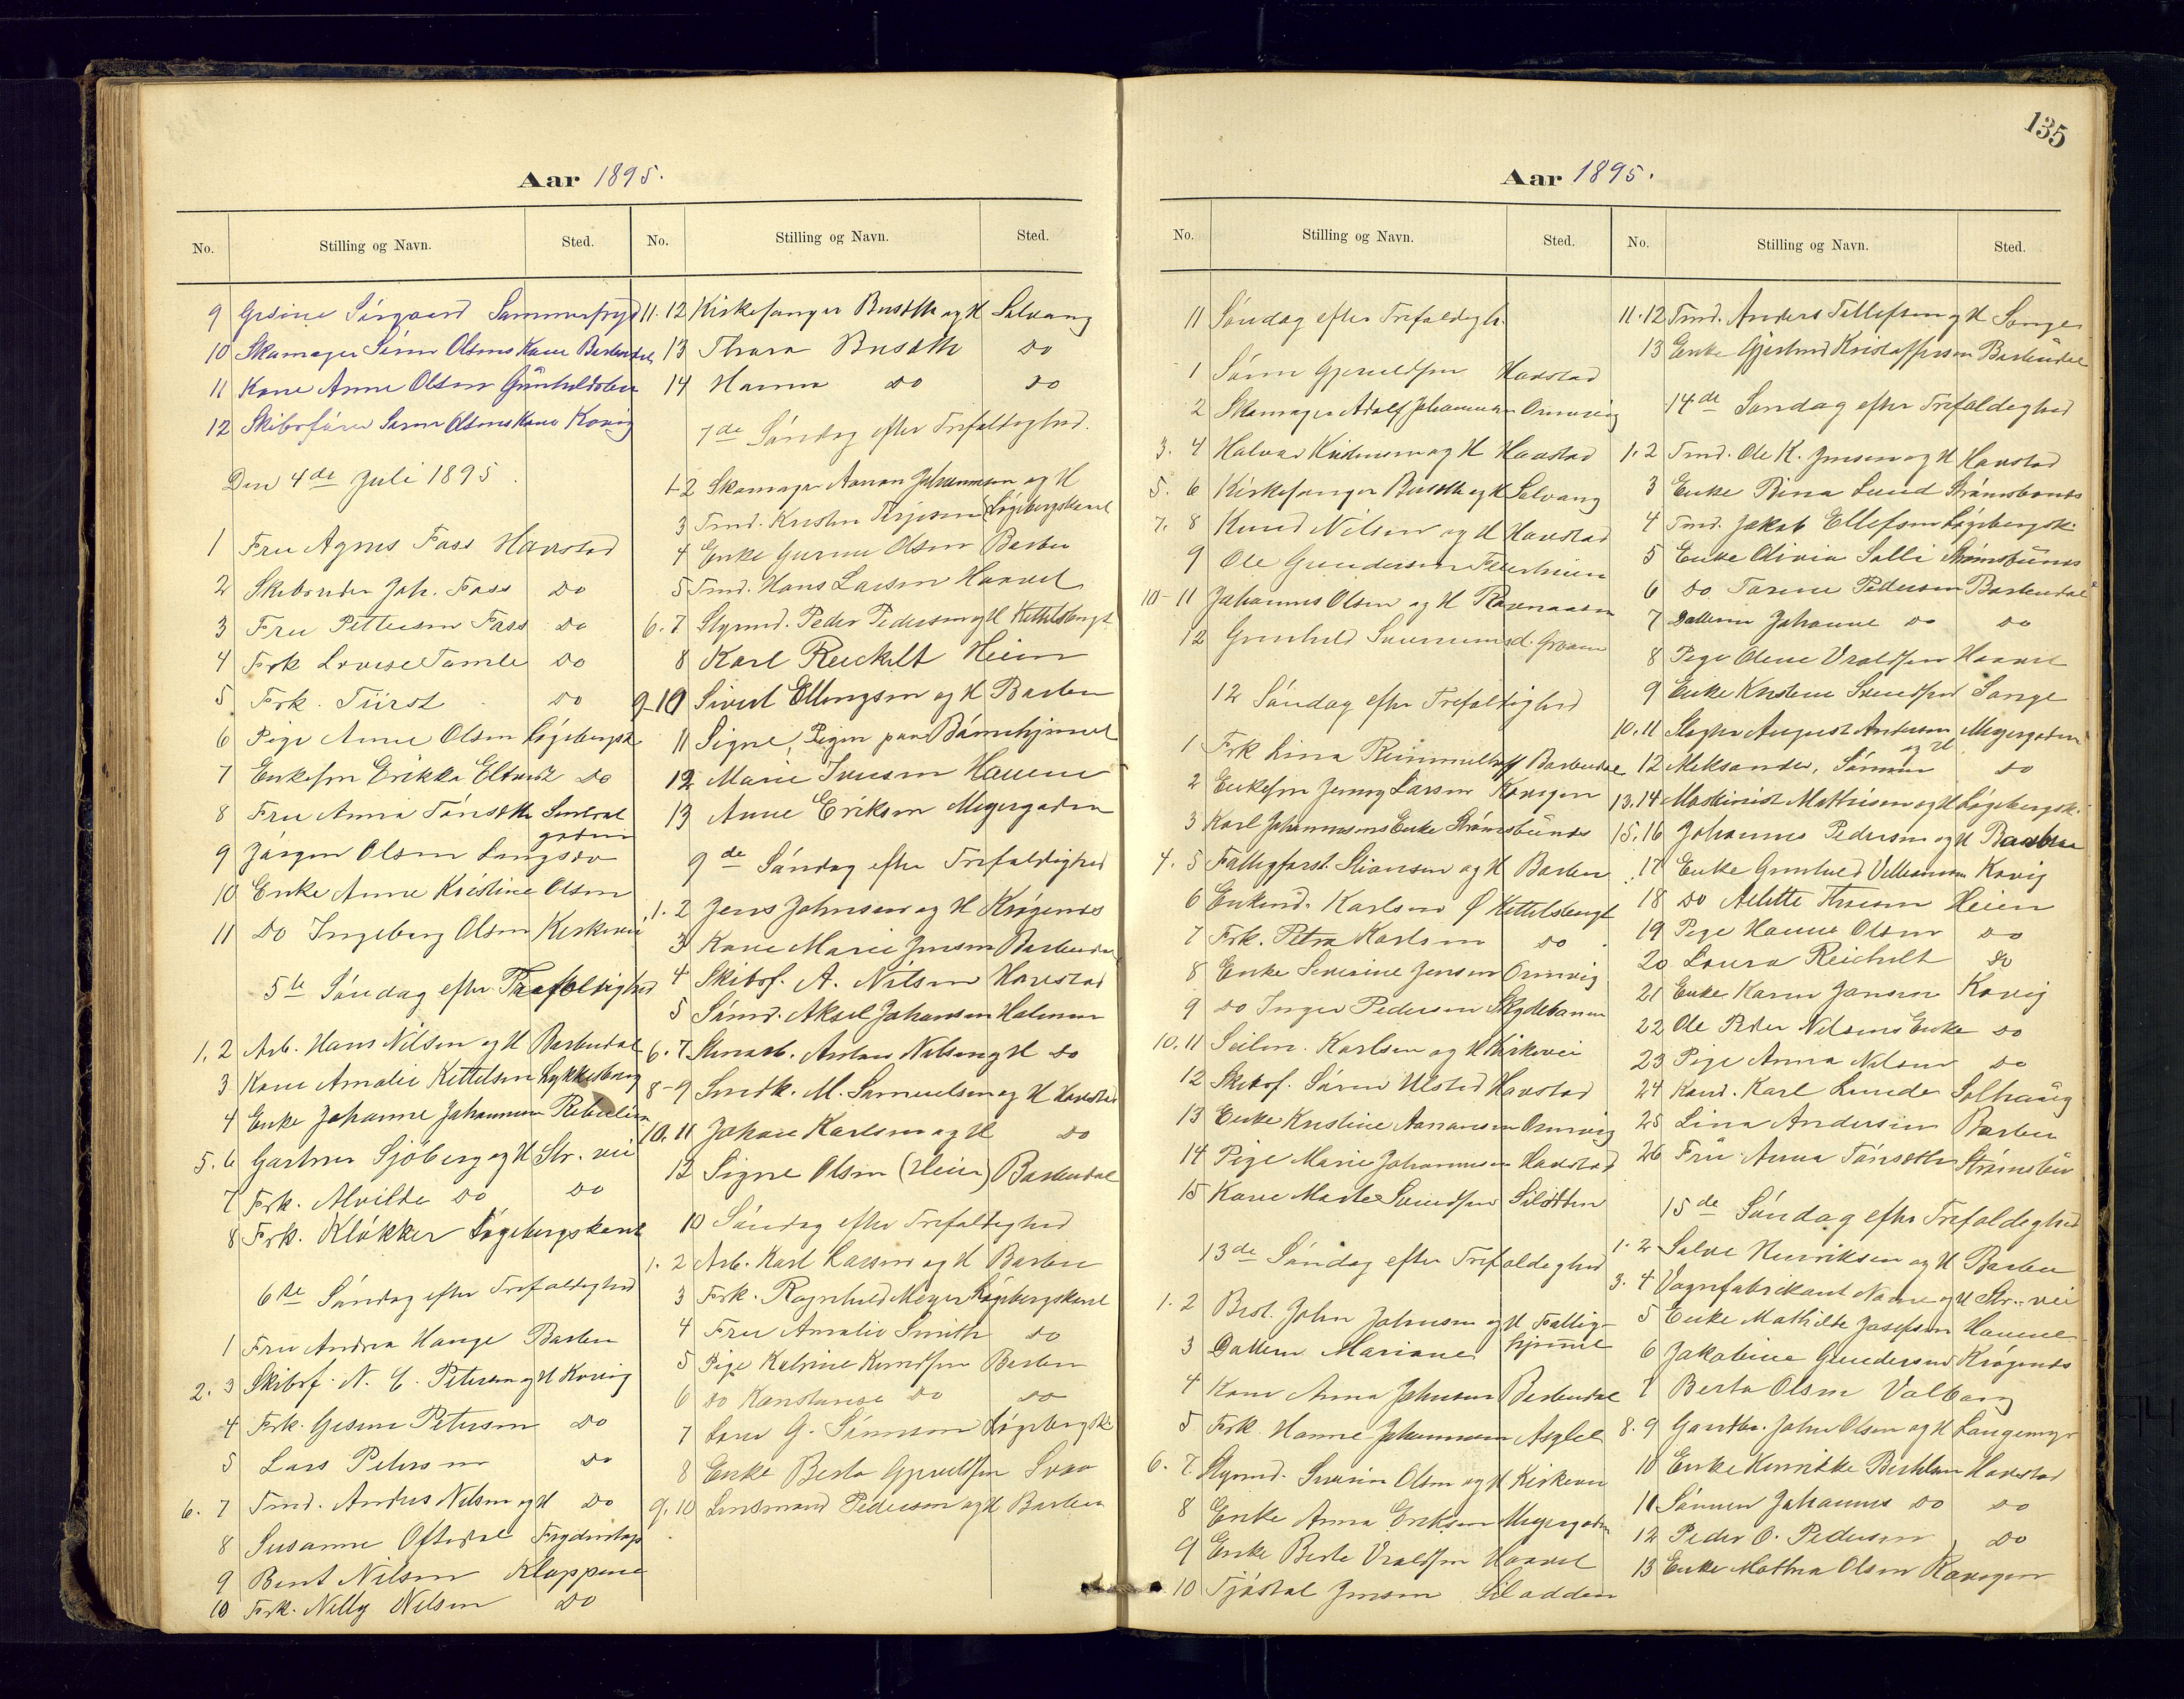 Aar 1895.
No. Stilling og Navn. Sted.
9 Gesine Sørgaard Sommerfryd
10 Skomager Sørn Olsens Kone Barbudal
11 Kone Anne Olsen
12 Skibsfører Olsens Kone Kovig
Den 4de Juli 1895.
1 Fru Agnes Fass Havstad
2 Skibsreder Joh. Fass Do
3 Fru Pettersen Fass Do
4 Frk Lovise Tamle Do
5 Frk. Fürst Do
6 Pige Anne Olsen Løgebergsk
7 Enkefru Erikke Do
8 Fru Anna Tønseth Sentral
gaden
9 Jørgen Olsen Langsæ
10 Enke Anne Kristine Olsen
11 Do Ingeborg Olsen Kirkevei
5te Søndag efter Trefoldighed
1. 2 Arb. Hans Nilsen og H Barbudal
3 Kone Amalie Kettelsen Lykkesborg
4 Enke Johanne Johannesen
5. 6 Gartner Sjöberg og H Str. vei
7 Frk. Alvilde Do Do
8 Frk. Kløkker Løgebergskant
6te Søndag efter Trefoldighed
1 Fru Andrea Hauge Barbu
2. 3 Skibsf. N. C. Petersen og H Kovig
4 Frk. Gesine Petersen Do
5 Lars Petersen Do
6. 7 Tmd. Anders Nilsen og H Do
8 Susanne Oftedal
9 Bent Nilsen Kloppene
10 Frk. Nelly Nilsen Do
No. Stilling og Navn. Sted.
11. 12 Kirkesanger Buseth og H Solvang
13 Thora Buseth Do
14 Hanna Do Do
7de Søndag efter Trefoldighed.
1-2 Skomager Aanon Johannesen og H
3 Tmd. Kristen Terjesen Løgebergskant
4 Enke Gurine Olsen Barbu
5 Tmd. Hans Larsen Haavet
6. 7 Styrmd. Peder Pedersen og H Kittelsbugt
8 Karl Reichelt Heien
9-10 Sivert Ellingsen og H Barbu
11 Signe, Pigen paa Børnehjemmet
12 Marie Iversen Havene
13 Anne Eriksen Meyergaden
9de Søndag efter Trefoldighed
1. 2 Jens Johnsen og H Krøgenes
3 Kone Marie Jensen Barbudal
4 Skibsf. A. Nilsen Havestad
5 Sømd. Aksel Johansen Holmen
6. 7 Stenarb. Anton Nilsen og H Do
8-9 Snedk. M. Samuelsen og H Havestad
10. 11 Johan Karlsen og H Do
12 Signe Olsen (Heien) Barbudal
10 Søndag efter Trefoldighed
1. 2 Arb. Karl Larsen og H Barbu
3 Frk. Ragnhild Meyer Løgebergskant
4 Fru Amalie Smith Do
5 Pige Katrine Knudsen Barbu
6 Do Konstance Do Do
7 Lars G. Simonsen Løgebergsk.
8 Enke Berta Gjeruldsen
9. 10 Lensmand Pedersen og H Barbu
135
Aar 1895.
No. Stilling og Navn. Sted.
11 Søndag efter Trefoldigh.
1 Sørn Gjeruldsen Havstad
2 Skomager Adolf Johannesen Ormvig
3. 4 Halvor Kristensen og H Havstad
5. 6 Kirkesanger Buseth og H Solvang
7. 8 Knud Nilsen og H Havstad
9 Ole Gundersen
10-11 Johannes Olsen og H Ravnaasen
12 Gunhild
12 Søndag efter Trefoldighed
1 Frk Lina Barbudal
2 Enkefru Jenny Larsen Kovigen
3 Karl Johannesens Enke Strømsbunds
4. 5 Fattigforst. Stiansen og H Barbu
6 Enkmd. Karlsen Ø Kittelsbugt
7 Frk. Petra Karlsen Do
8 Enke Severine Jensen Ormvig
9 Do Inger Pedersen Skydebanen
10. 11 Seilm. Karlsen og H Kirkevei
12 Skibsf. Søren Ulsted Havstad
13 Enke Kristine Aanonsen Ormvig
14 Pige Marie Johannesen Havstad
15 Kone Marte Svendsen Silodden
13de Søndag efter Trefoldighed
1. 2 Best. John Johnsen og H Fattig-
3 Datteren Mariane hjemmet
4 Kone Anna Johnsen Barbudal
5 Frk. Hanne Johannesen
6. 7 Styrmd. Severin Olsen og H Kirkevei
8 Enke Anna Eriksen Meyergaden
9 Enke Berte Uraldsen Haavet
10 Tjøstol Jensen Silodden
No. Stilling og Navn. Sted.
11. 12 Tmd. Anders Tellefsen og H Songe
13 Enke Gjertrud Kristoffersen Barbudal
14de Søndag efter Trefoldighed
1. 2 Tmd. Ole K. Jensen og H Havstad
3 Enke Rina Lund Strømsbunds
4 Tmd. Jakob Ellefsen Løgebergsk.
5 Enke Olivia Salli Strømsbunds
6 Do Tarine Pedersen Barbudal
7 Datteren Johanne Do Do
8 Pige Olene Uraldsen Haavet
9 Enke Kristine Svendsen Songe
10. 11 Slagter August Andersen Meyergaden
og H
12 Aleksander, Sønnen Do
13. 14 Maskinist Mathisen og H Løgebergsk.
15. 16 Johannes Pedersen og H Barbu
17 Enke Gunhild Villumsen Kovig
18 Do Aslette Heien
19 Pige Hanna Olsen Do
20 Laura Reichelt Do
21 Enke Karen Jansen Kovig
22 Ole Peder Nilsens Enke Do
23 Pige Anna Nilsen Do
24 Kand. Karl Lunde Solhaug
25 Lina Andersen Barbu
26 Fru Anna Tønseth Strømsbu
15de Søndag efter Trefoldighed
1. 2 Salve Henriksen og H Barbu
3. 4 Vognfabrikant Næne og H Str. vei
5 Enke Mathilde Josefsen Havene
6 Jakobine Gundersen Krøgenes
7 Berte Olsen Valborg
8. 9 Gaardbr. John Olsen og H Langemyr
10 Enke Henrikke Bertelsen Havestad
11 Sønnen Johannes Do Do
12 Peder O. Pedersen Do
13 Enke Mathea Olsen Kovigen